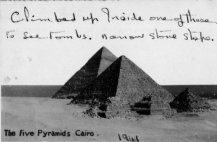 Climbed up inside one of these
to see tombs. narrow stone steps.
The five Pyramids Cairo.
1941